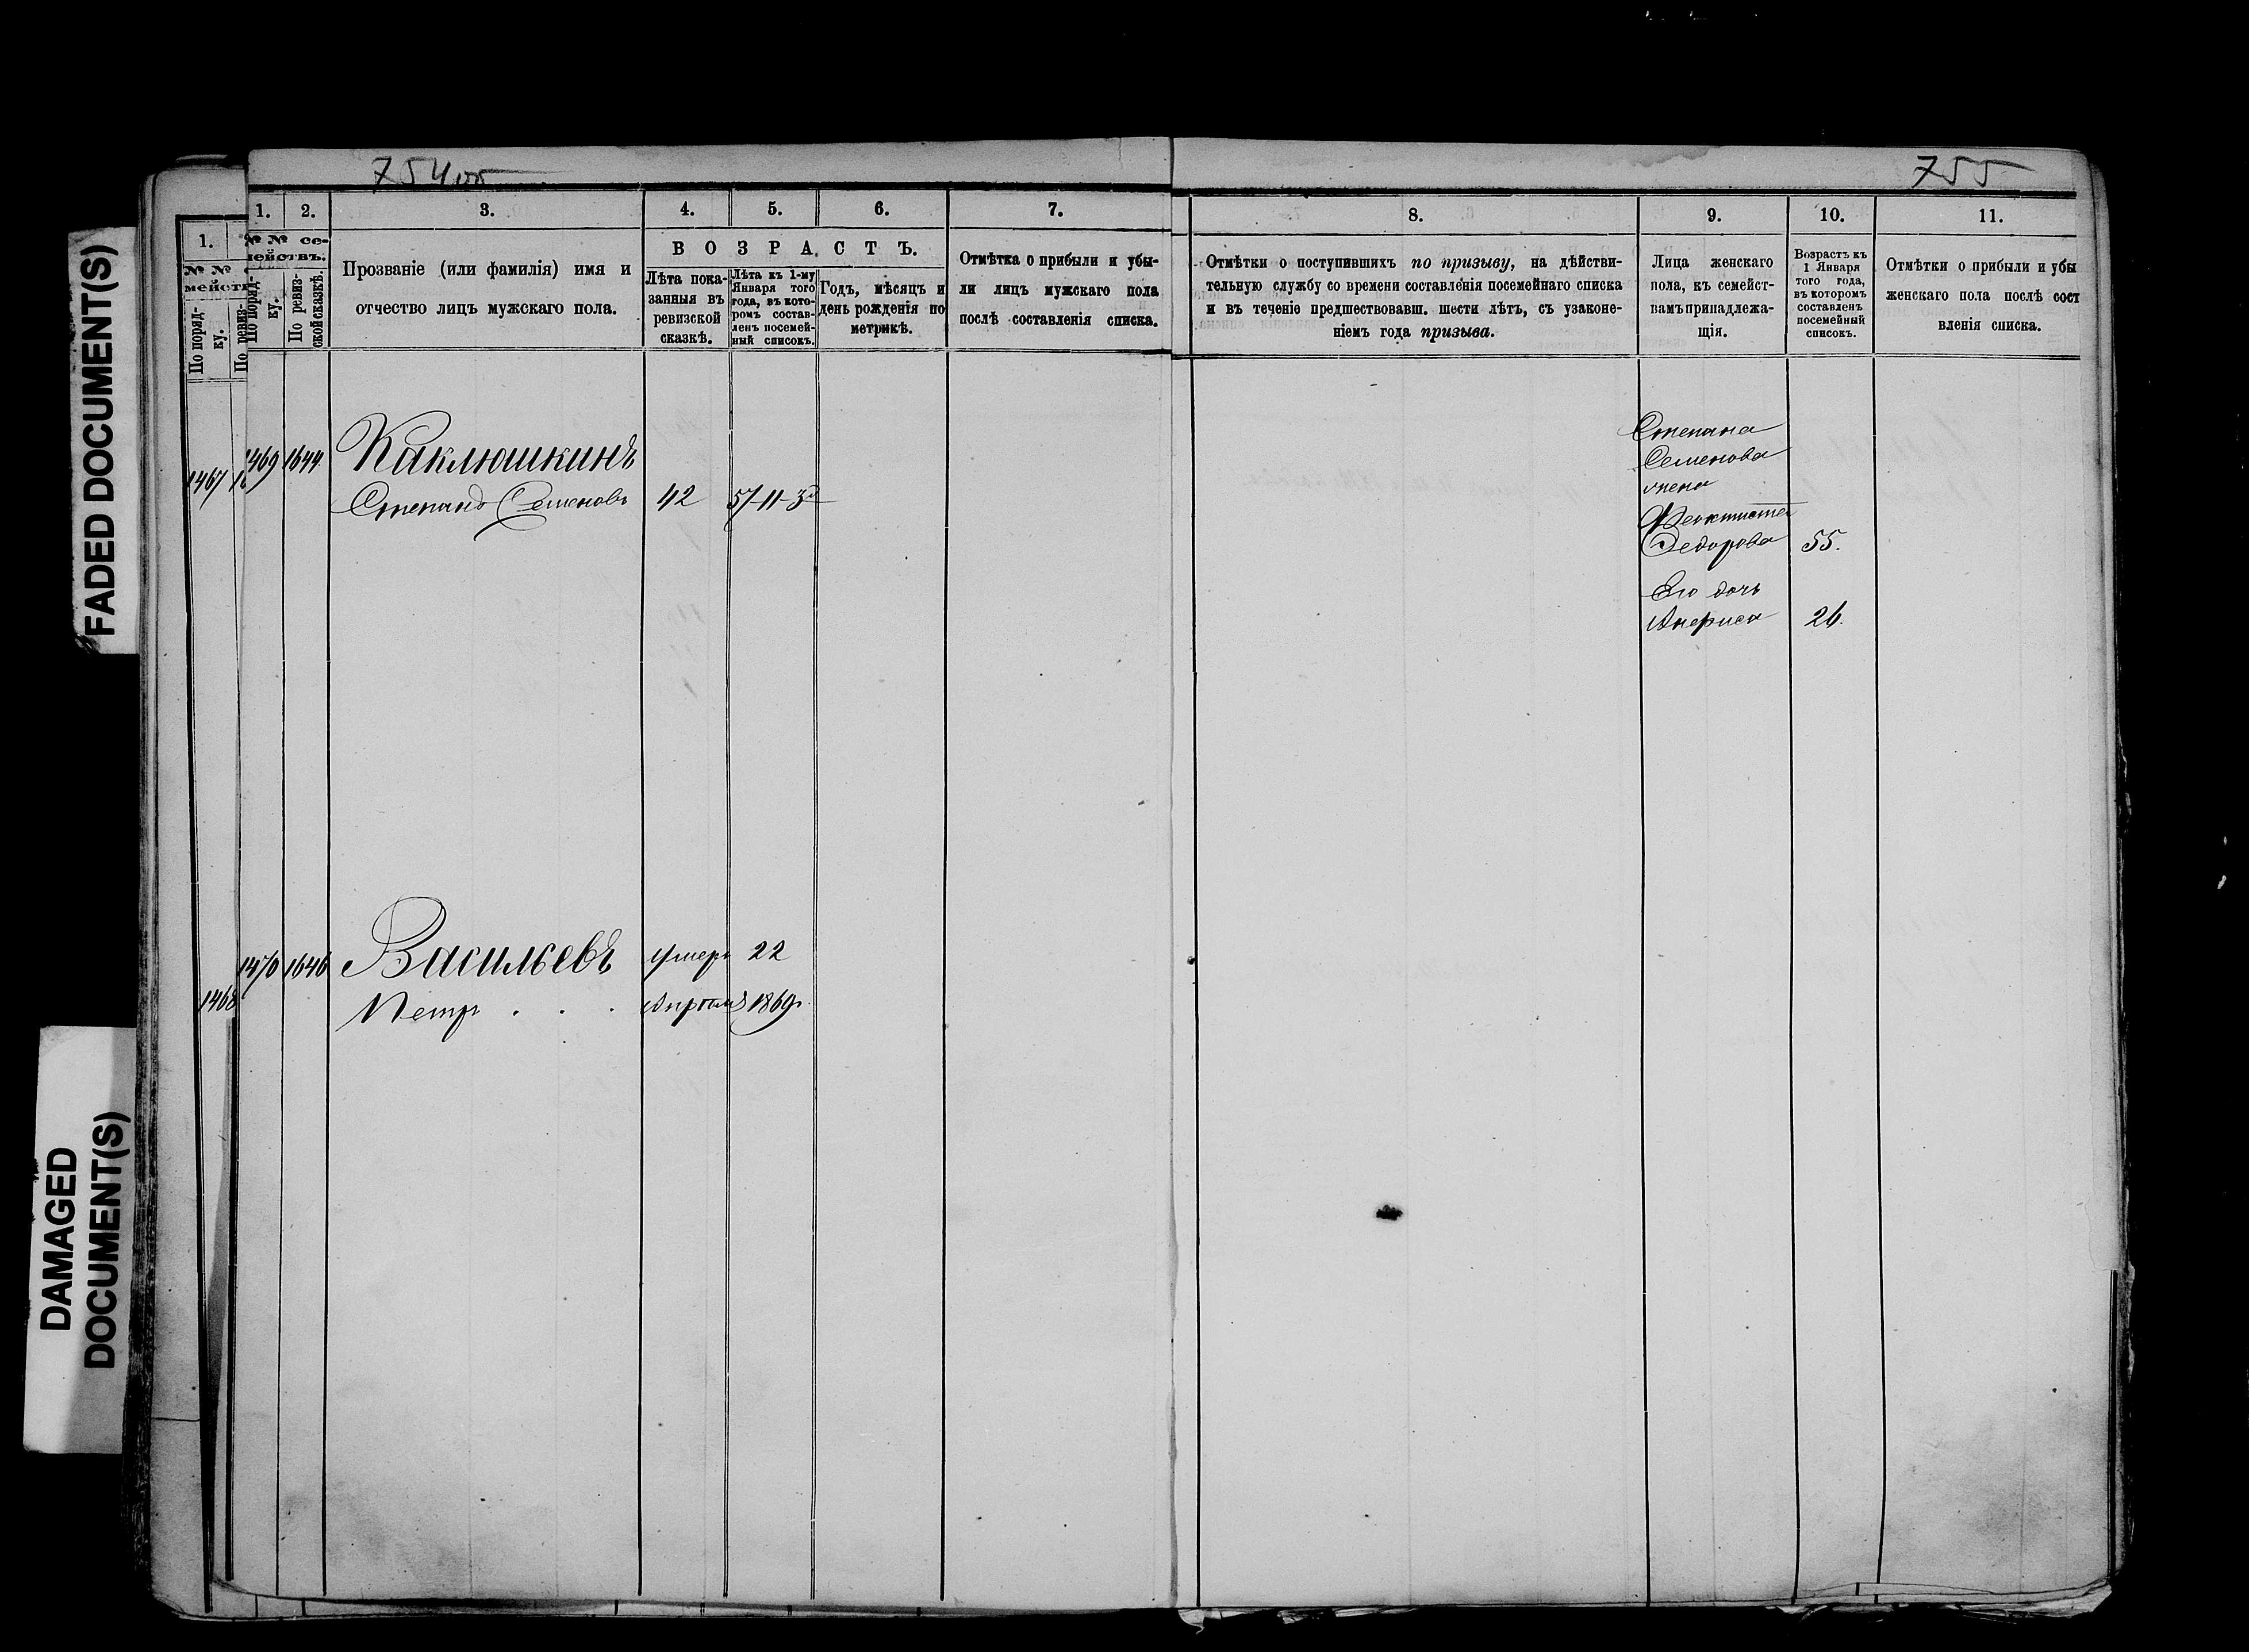 754об
755
FADED DOCUMENT(S)
DAMAGED
DOCUMENT(S)
1.
№ №
мейств
По поряд-
ку.
По ревиз-
1467
1468
1.
2.
3.
4.
5.
6.
7.
№ № се-
мействъ.
По поряд-
ку.
По ревиз-
ской сказкѣ.
Прозваніе (или фамилія) имя и
отчество лицъ мужскаго пола.
ВОЗРАСТЪ.
Лѣта пока-
занныя въ
ревизской
сказкѣ.
Лѣта къ 1-му
Января того
года, въ кото-
ромъ состав-
ленъ посемей-
ный списокъ.
Годъ, мѣсяцъ и
день рожденія по
метрикѣ.
Отмѣтка о прибыли и убы-
ли лицъ мужскаго пола
послѣ составленія списка.
8.
9.
10.
11.
Отмѣтки о поступившихъ по призыву, на дѣйстви-
тельную службу со времени составленія посемейнаго списка
и въ теченіе предшествовавш. шести лѣтъ, съ узаконе-
ніемъ года призыва.
Лица женскаго
пола, къ семейст-
вамъ принадлежа-
щія.
Возрастъ къ
1 Января
того года,
въ которомъ
составленъ
посемейный
списокъ.
Отмѣтки о прибыли и убы
женскаго пола послѣ сост
вленія списка.
1469 1644 Каклюшкинъ
Степанъ Семеновъ 42 57-11-3
Степана
Семенова
жена
Феоктиста
Федорова 55.
Его дочь
Анфиса 26.
1470 1646 Васильевъ умеръ 22
Петръ . . . Апрѣля 1869г.